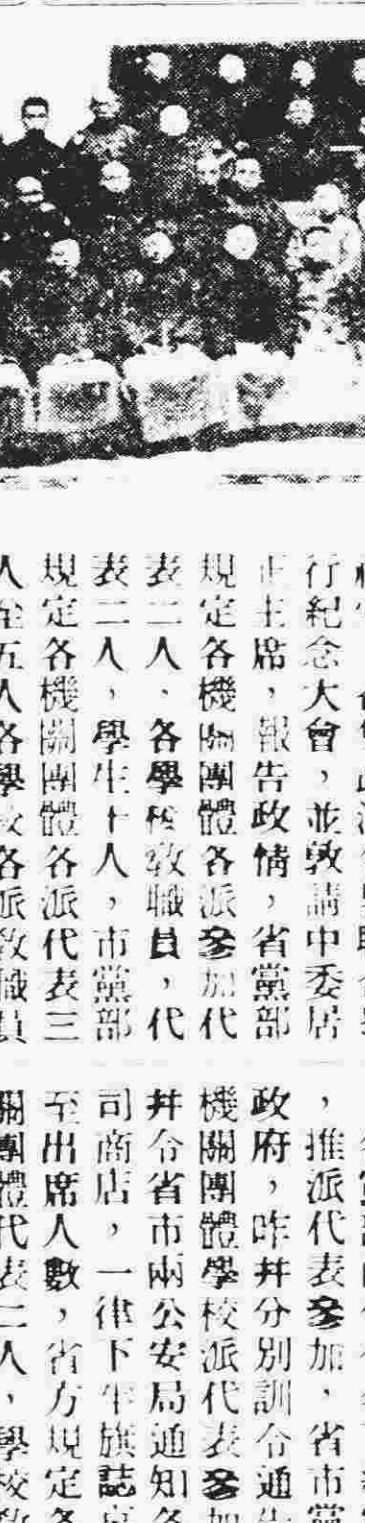 行紀念大會，並敦請中委居
正主席，報告政情，省黨部
規定各機關團體各派參加代
表二人、各學校敎職員，代
表二人，學生十人，市黨部
規定各機關團體各派代表三
人至五人各學校各派敎職員
，推派代表參加，省市黨
政府，咋幷分別訓令通告
機關團體學校派代表參加
幷令省市兩公安局通知各
司商店，一律下半旗誌哀
至出席人數，省方規定各
關團體代表二人，學校敎